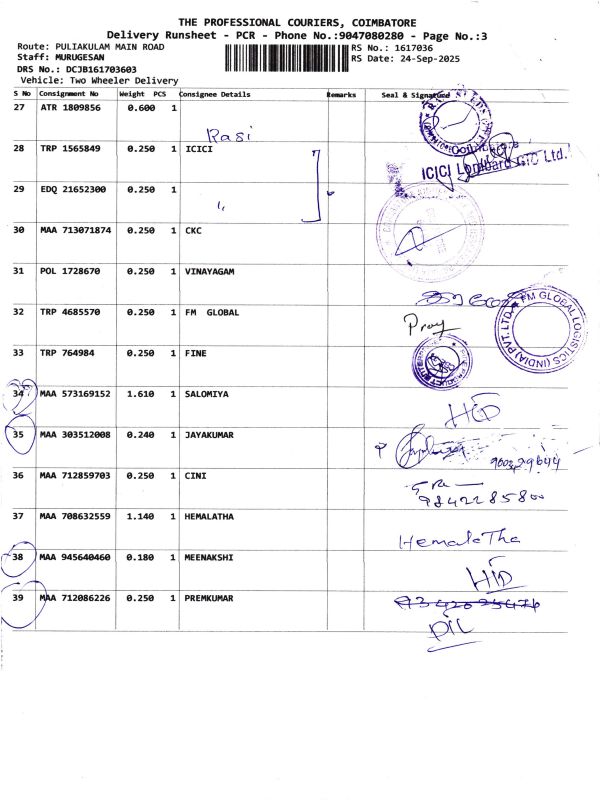 THE PROFESSIONAL COURIERS, COIMBATORE
Delivery Runsheet - PCR - Phone No.:9047080280 - Page No.:3
Route: PULIAKULAM MAIN ROAD RS No.: 1617036
Staff: MURUGESAN RS Date: 24-Sep-2025
DRS No.: DCJB161703603
Vehicle: Two Wheeler Delivery
S No Consignment No Weight PCS Consignee Details Remarks Seal & Signature
27 ATR 1809856 0.600 1
Rasi
28 TRP 1565849 0.250 1 ICICI
ICICI Lombard GIC Ltd.
29 EDQ 21652300 0.250 1
30 MAA 713071874 0.250 1 CKC
31 POL 1728670 0.250 1 VINAYAGAM
32 TRP 4685570 0.250 1 FM GLOBAL
FM GLOBAL LOGISTICS (INDIA) PVT. LTD.
33 TRP 764984 0.250 1 FINE
34 MAA 573169152 1.610 1 SALOMIYA
35 MAA 303512008 0.240 1 JAYAKUMAR
36 MAA 712859703 0.250 1 CINI
9842285800
37 MAA 708632559 1.140 1 HEMALATHA
Hemalatha
38 MAA 945640460 0.180 1 MEENAKSHI
39 MAA 712086226 0.250 1 PREMKUMAR